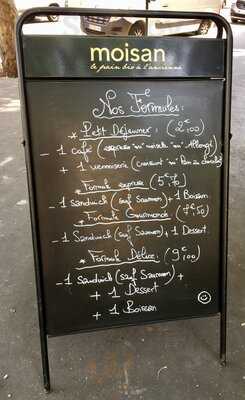 moisan
le pain bio à l'ancienne
Nos Formules :
* Petit Déjeuner : (2€00)
- 1 café (expresso "ou" noisette "ou" Allongé)
+ 1 viennoiserie (croissant "ou" Pain au chocolat)
* Formule express (5€70)
- 1 Sandwich (sauf Saumon) + 1 Boisson
* Formule Gourmande : (7€50)
- 1 Sandwich (sauf Saumon) + 1 Dessert
* Formule Délice : (9€00)
- 1 Sandwich (sauf Saumon) +
+ 1 Dessert
+ 1 Boisson